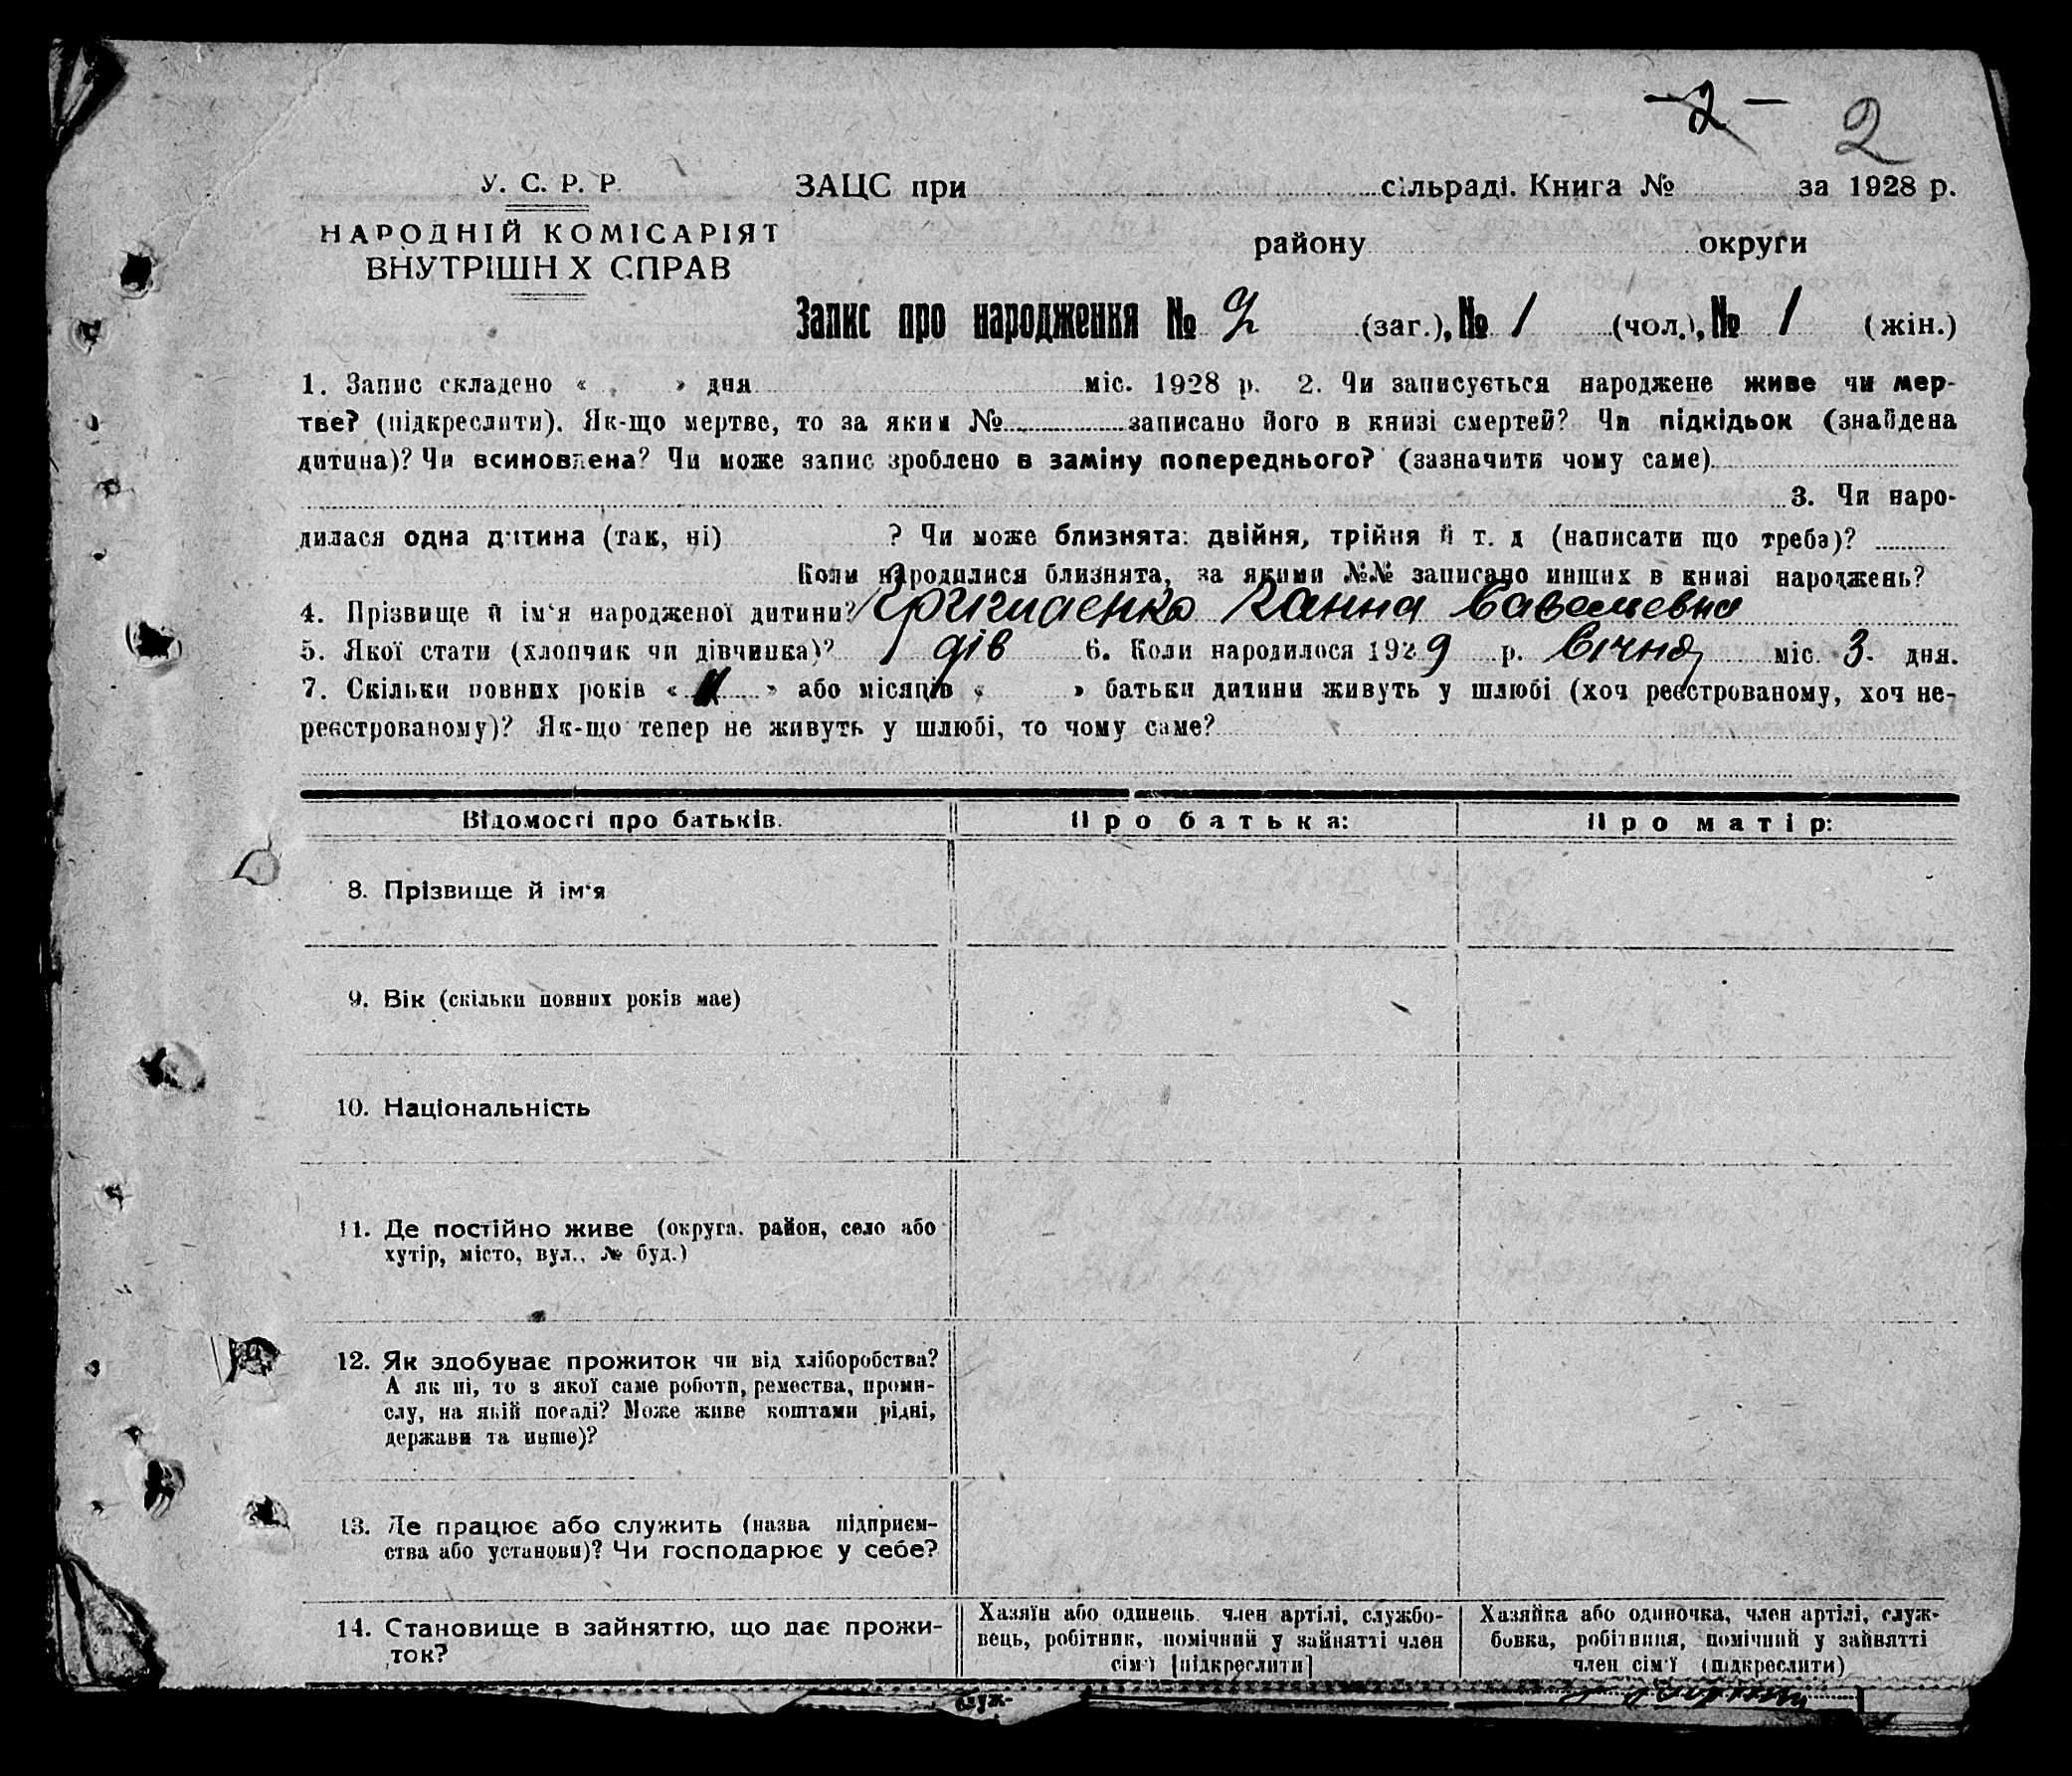 -2-
2
У. С. Р. Р.
НАРОДНІЙ КОМІСАРІЯТ
ВНУТРІШН Х СПРАВ
ЗАЦС при сільраді. Книга № за 1928 р.
району округи
Запис про народження № 2 (заг.), № 1 (чол.), № 1 (жін.)
1. Запис складено « » дня міс. 1928 р. 2. Чи записується народжене живе чи мер-
тве? (підкреслити). Як-що мертве, то за яким № записано його в книзі смертей? Чи підкідьок (знайдена
дитина)? Чи всиновлена? Чи може запис зроблено в заміну попереднього? (зазначити чому саме)
3. Чи наро-
дилася одна дитина (так, ні) ? Чи може близнята: двійня, трійня й т. д (написати що треба)?
Коли народилися близнята, за якими №№ записано инших в книзі народжень?
4. Прізвище й ім‘я народженої дитини? Ганна Савельевна
5. Якої стати (хлопчик чи дівчинка)? 1 дів 6. Коли народилося 1929 р. Січня міс. 3. дня.
7. Скільки повних років « » або місяців « » батьки дитини живуть у шлюбі (хоч реєстрованому, хоч не-
реєстрованому)? Як-що тепер не живуть у шлюбі, то чому саме?
Відомості про батьків. Про батька: Про матір:
8. Прізвище й ім‘я
9. Вік (скільки повних років має)
10. Національність
11. Де постійно живе (округа, район, село або
хутір, місто, вул., № буд.)
12. Як здобуває прожиток чи від хліборобства?
А як ні, то з якої саме роботи, ремества, проми-
слу, на якій посаді? Може живе коштами рідні,
держави та инше)?
13. Де працює або служить (назва підприєм-
ства або установи)? Чи господарює у себе?
14. Становище в зайняттю, що дає прожи-
ток?
Хазяїн або одинець, член артілі, службо-
вець, робітник, помічний у зайнятті член
сім‘ї [підкреслити]
Хазяйка або одиночка, член артілі, служ-
бовка, робітниця, помічний у зайнятті
член сім‘ї (підкреслити)
служ-